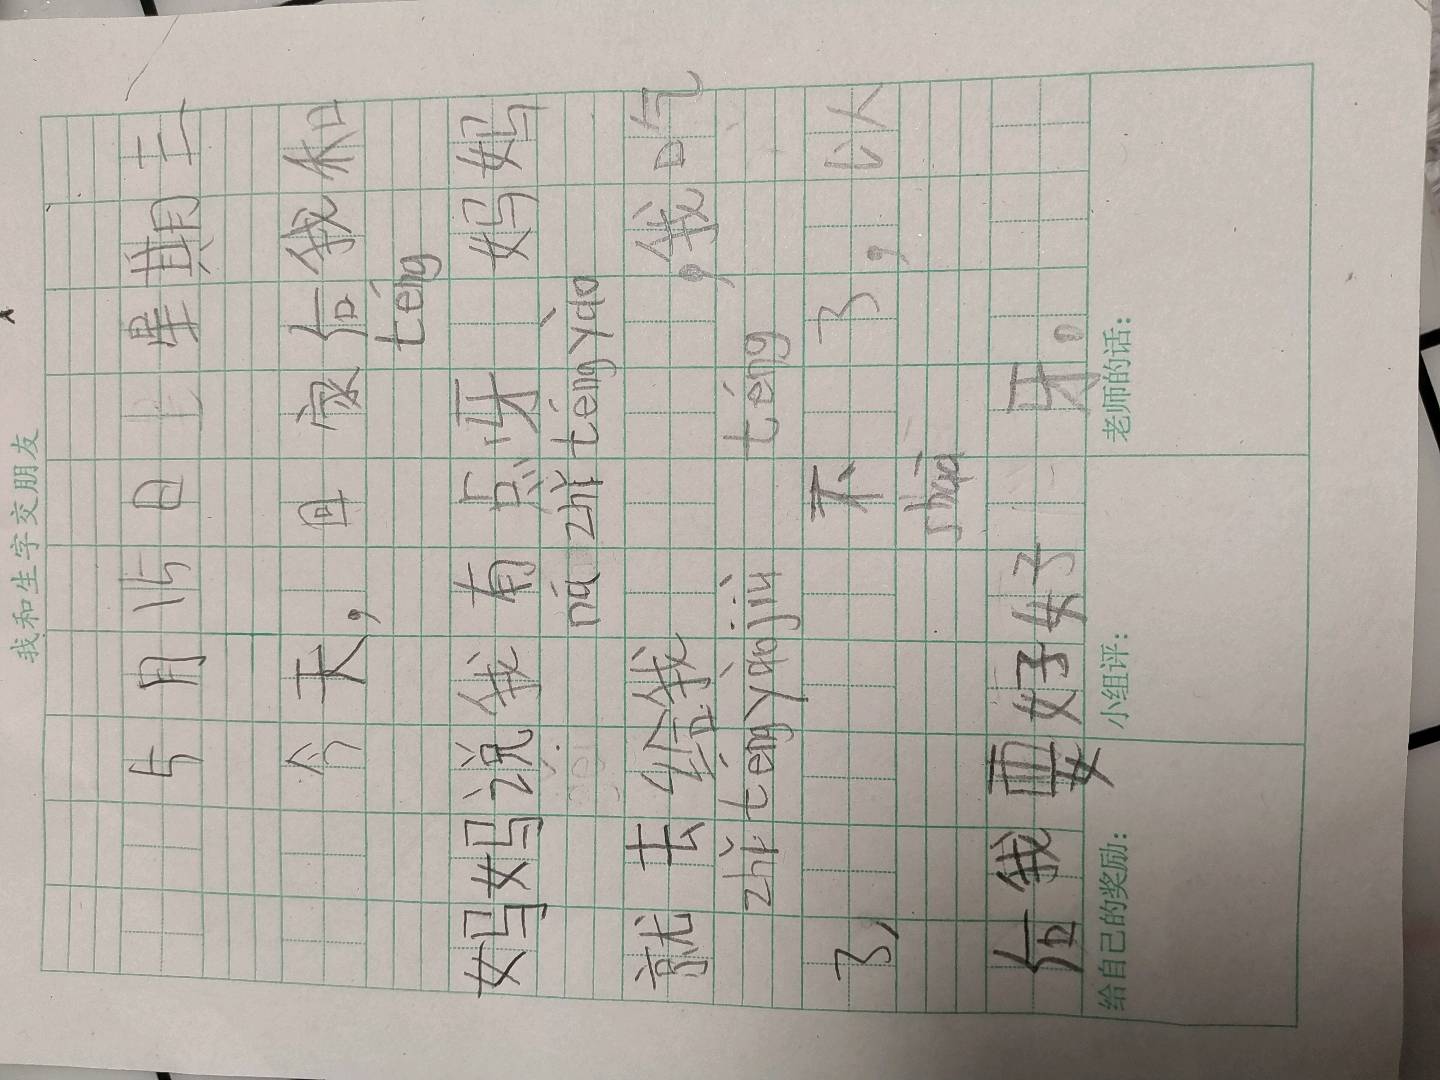 我和生字交朋友
5月15日 星期三
今天,回家后我和
téng
妈妈说我有点牙 妈妈
ná zhǐ téng yào
就去给我 ,我吃
zhǐ téng yào jiù téng
了, 不 了,以
shuā
后我要好好 牙。
给自己的奖励: 小组评: 老师的话: